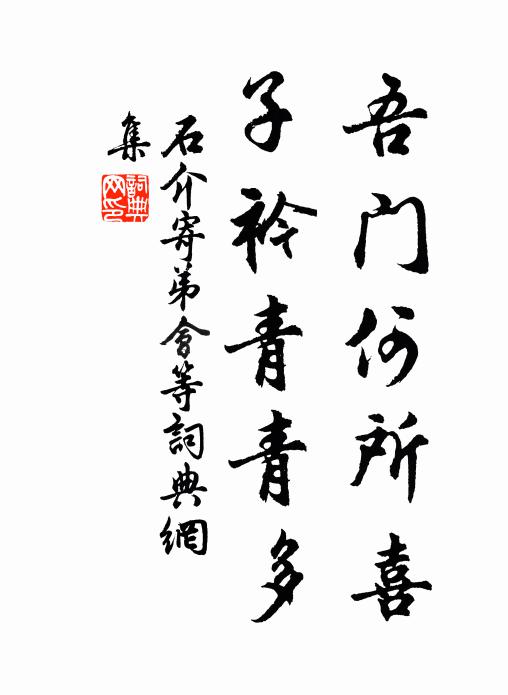 吾门何所喜
子衿青青多
石介寄弟會等詞典網
集
詞典
网印